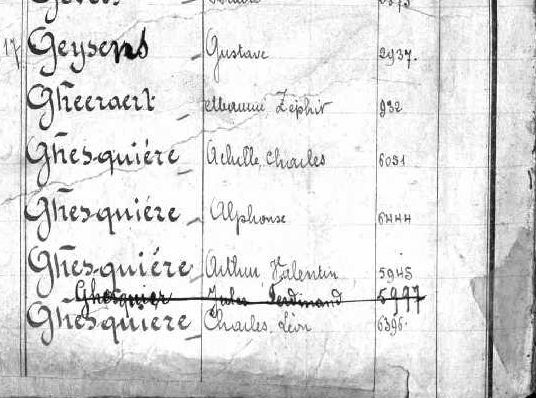 17 Geysens - Gustave 2937.
Gheeraert - Zéphir 932
Ghesquiére - Achille, Charles 6031
Ghesquiére - Alphonse 6444
Ghesquiére - Arthur, Valentin 5945
Ghesquier Jules Ferdinand 5997
Ghesquiére - Charles, Léon 6396.